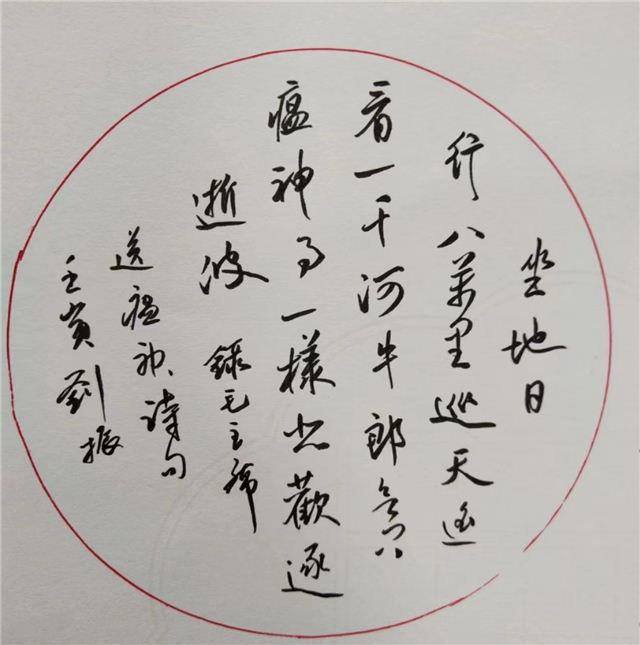 坐地日
行八萬里巡天遥
看一千河牛郎欲问
瘟神事一樣悲歡逐
逝波 錄毛主席
送瘟神诗句
壬寅劉振